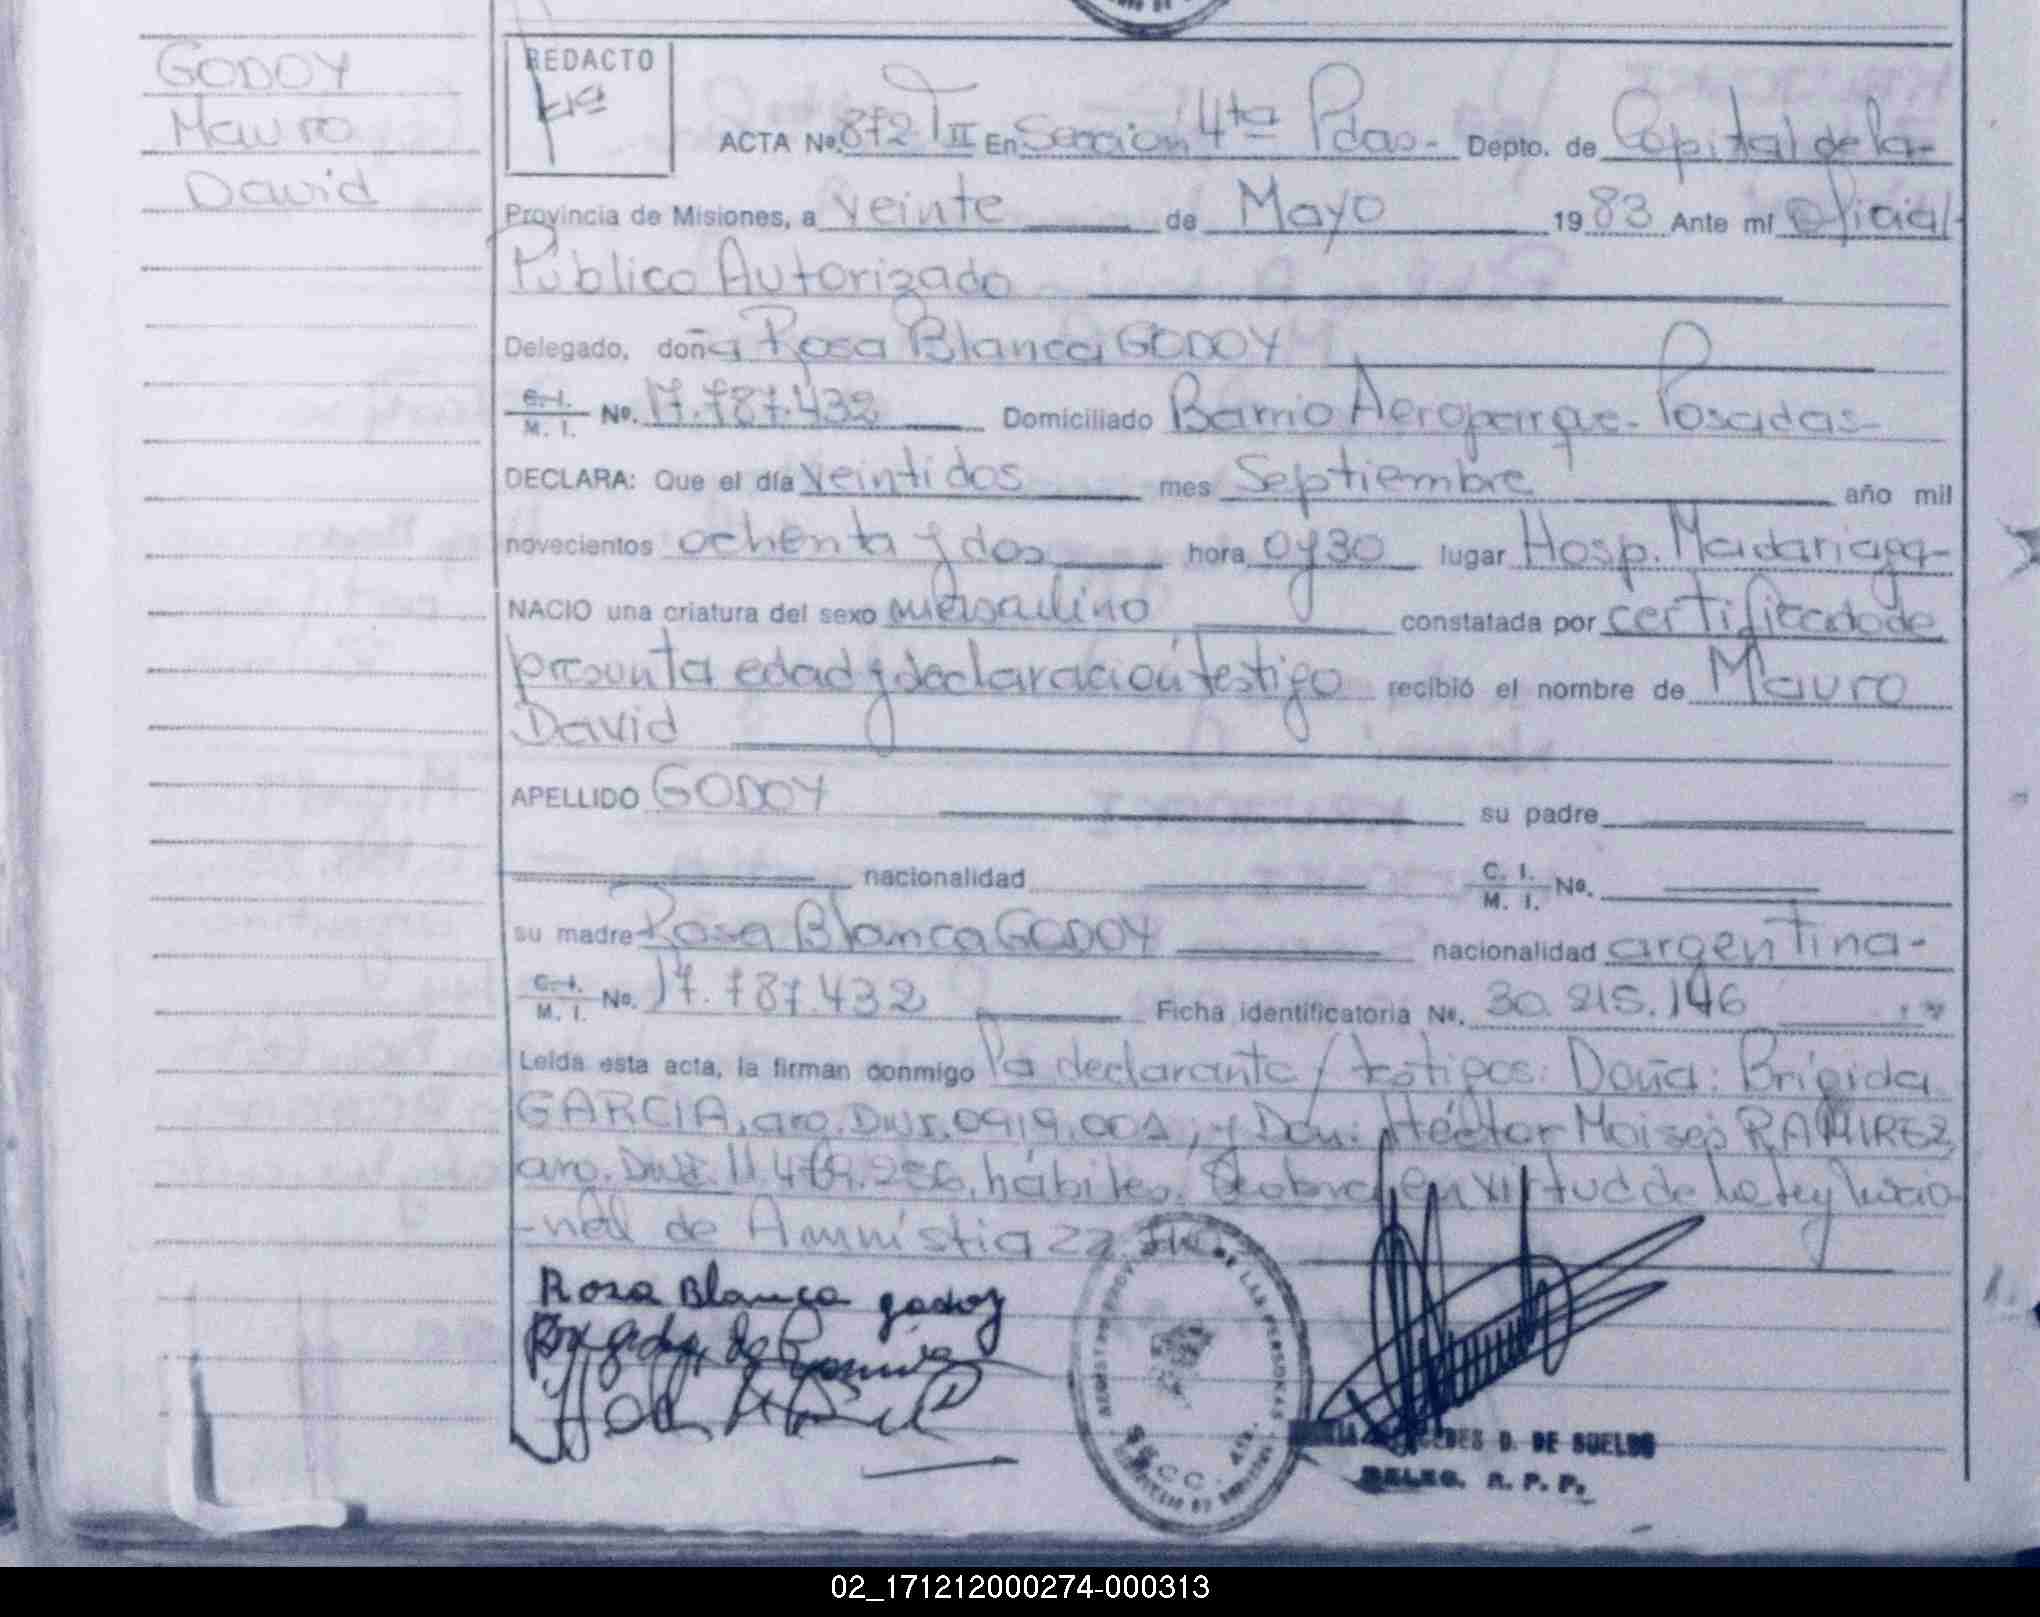 GODOY
Mauro
David
REDACTO
ACTA Nº. 872 T II En Sección 4ta Pdas- Depto. de Capital de la-
Provincia de Misiones, a veinte de Mayo 1983 Ante mí Oficial
Público Autorizado
Delegado, doña Rosa Blanca GODOY
C. I.
M. I. Nº. 17.787.432 Domiciliado Barrio Aeroparque- Posadas-
DECLARA: Que el día veintidos mes Septiembre año mil
novecientos ochenta y dos hora 0y30 lugar Hosp. Madariaga-
NACIO una criatura del sexo masculino constatada por certificado de
presunta edad y declaración testigo recibió el nombre de Mauro
David
APELLIDO GODOY su padre
nacionalidad C. I.
M. I. Nº.
su madre Rosa Blanca GODOY nacionalidad argentina-
C. I.
M. I. Nº. 17.787.432 Ficha identificatoria Nº. 30.215.146
Leída esta acta, la firman conmigo la declarante/testigos: Doña: Brígida
GARCIA, arg. DNI. 0919.001, y Don: Héctor Moisés RAMIREZ
arg. DNI. 11.469.256, hábiles. en virtud de la ley Nacio
-nal de Amnistia 22.
Rosa Blanca godoy
DE LAS PERSONAS
DES D. DE SUELDO
DELEG. R. P. P.
02_171212000274-000313